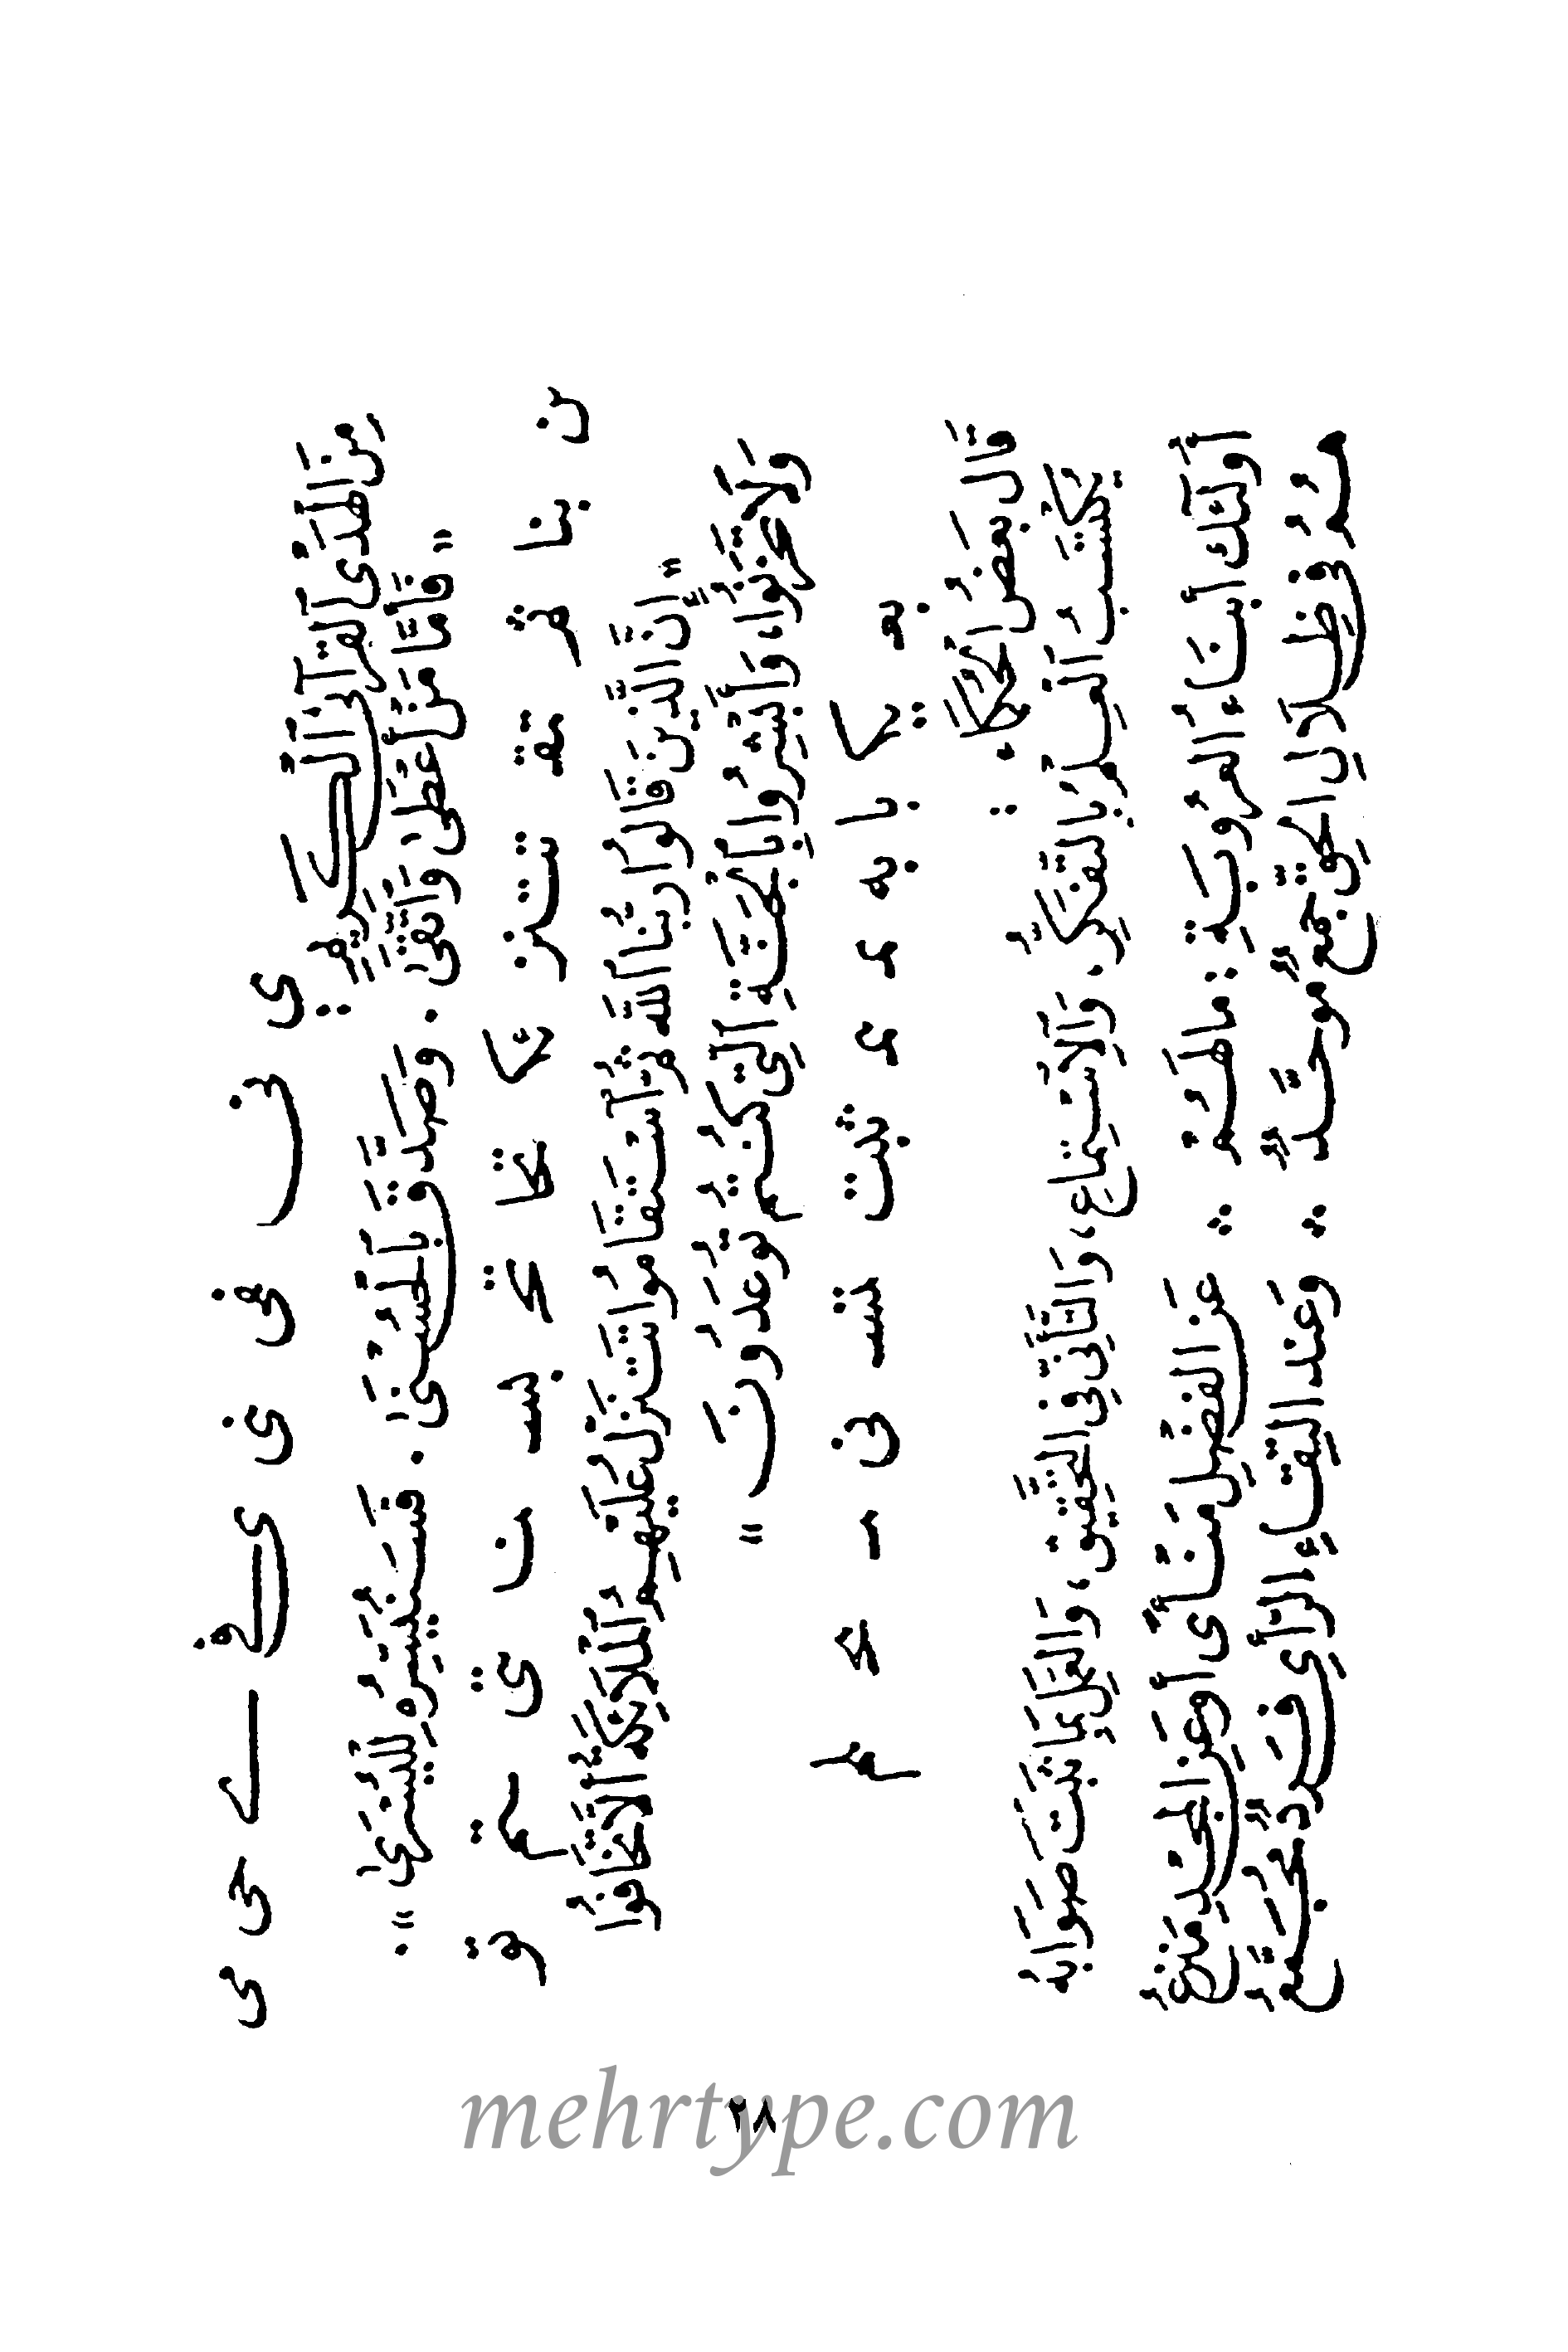 مِنَ الْهُدَى الْقُرْآنِيِّ الْكَرِيمِ :
" فَأَمَّا مَنْ أَعْطَىٰ وَاتَّقَىٰ . وَصَدَّقَ بِالْحُسْنَىٰ . فَسَنُيَسِّرُهُ لِلْيُسْرَىٰ " .
" إِنَّ الَّذِينَ قَالُوا رَبُّنَا اللَّهُ ثُمَّ اسْتَقَامُوا تَتَنَزَّلُ عَلَيْهِمُ الْمَلَائِكَةُ أَلَّا تَخَافُوا
وَلَا تَحْزَنُوا، وَأَبْشِرُوا بِالْجَنَّةِ الَّتِي كُنْتُمْ تُوعَدُونَ "
قَالَ بَعْضُ الْحُكَمَاءِ :
يُكْتَسَبُ الْعِلْمُ بِالتَّفَكُّرِ . وَالِاسْتِمَاعِ، وَالتَّأَنِّي فِي التَّحْقِيقِ، وَالْعَمَلِ بِمَا ثَبَتَ صَوَابُهُ
أُولَئِكَ أَبْنَاءُ الْعُرُوبَةِ : مَا لَهُمْ ∴ عَنِ الْفَضْلِ مَنْأًى أَوْ عَنِ الْمَجْدِ مَنْزَعُ
هُمُ فِي ظِلَالِ الْحَقِّ جَمْعٌ مُوَحَّدٌ ∴ وَعِنْدَ الْتِقَاءِ الرَّأْيِ فَرْدٌ مُجَمَّعُ
٢٨
mehrtype.com